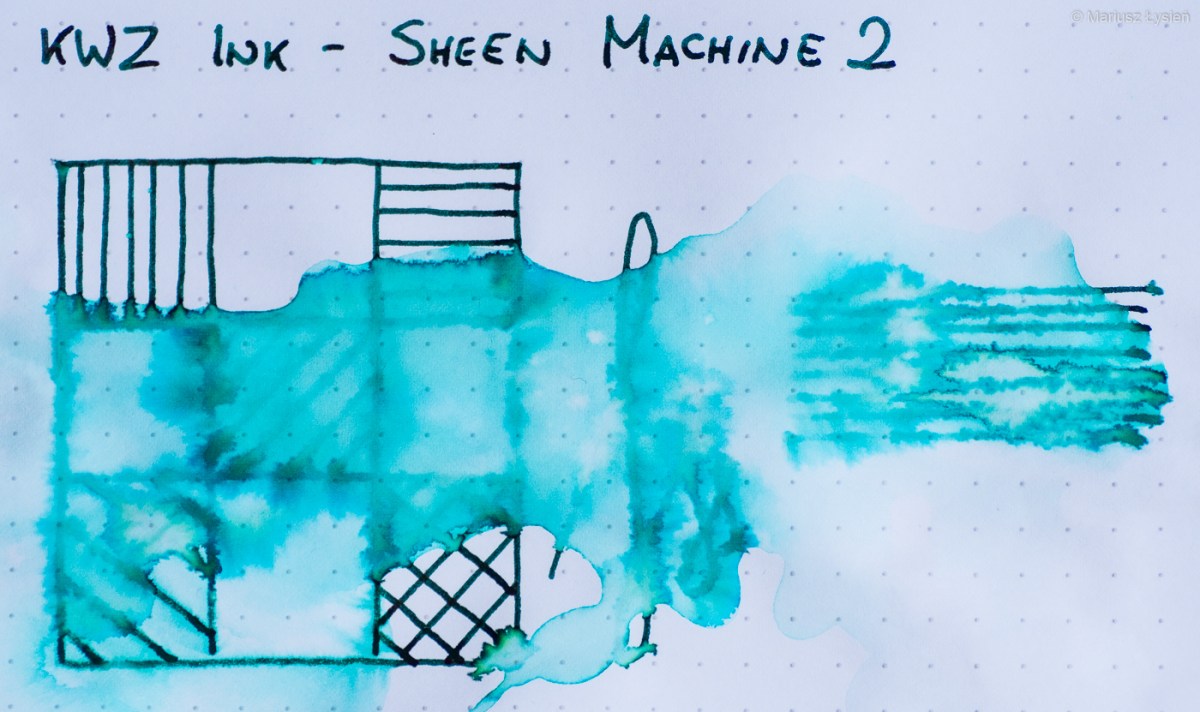 © Mariusz Łysień
KWZ INK - SHEEN MACHINE 2